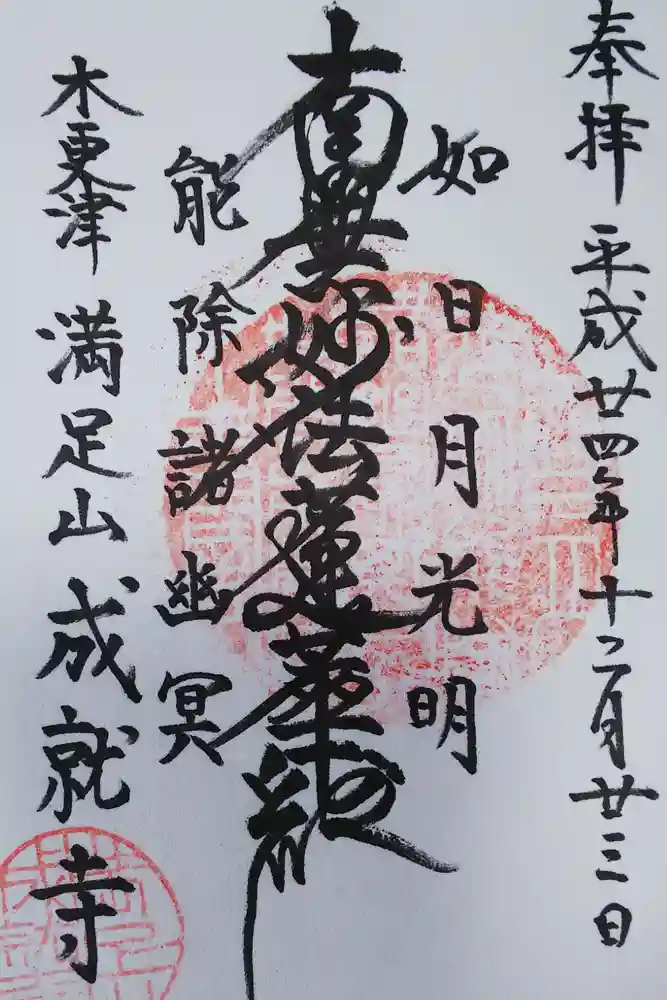 奉拝 平成廿四年十二月廿三日
如日月光明
南無妙法蓮華経
能除諸幽冥
木更津 満足山成就寺